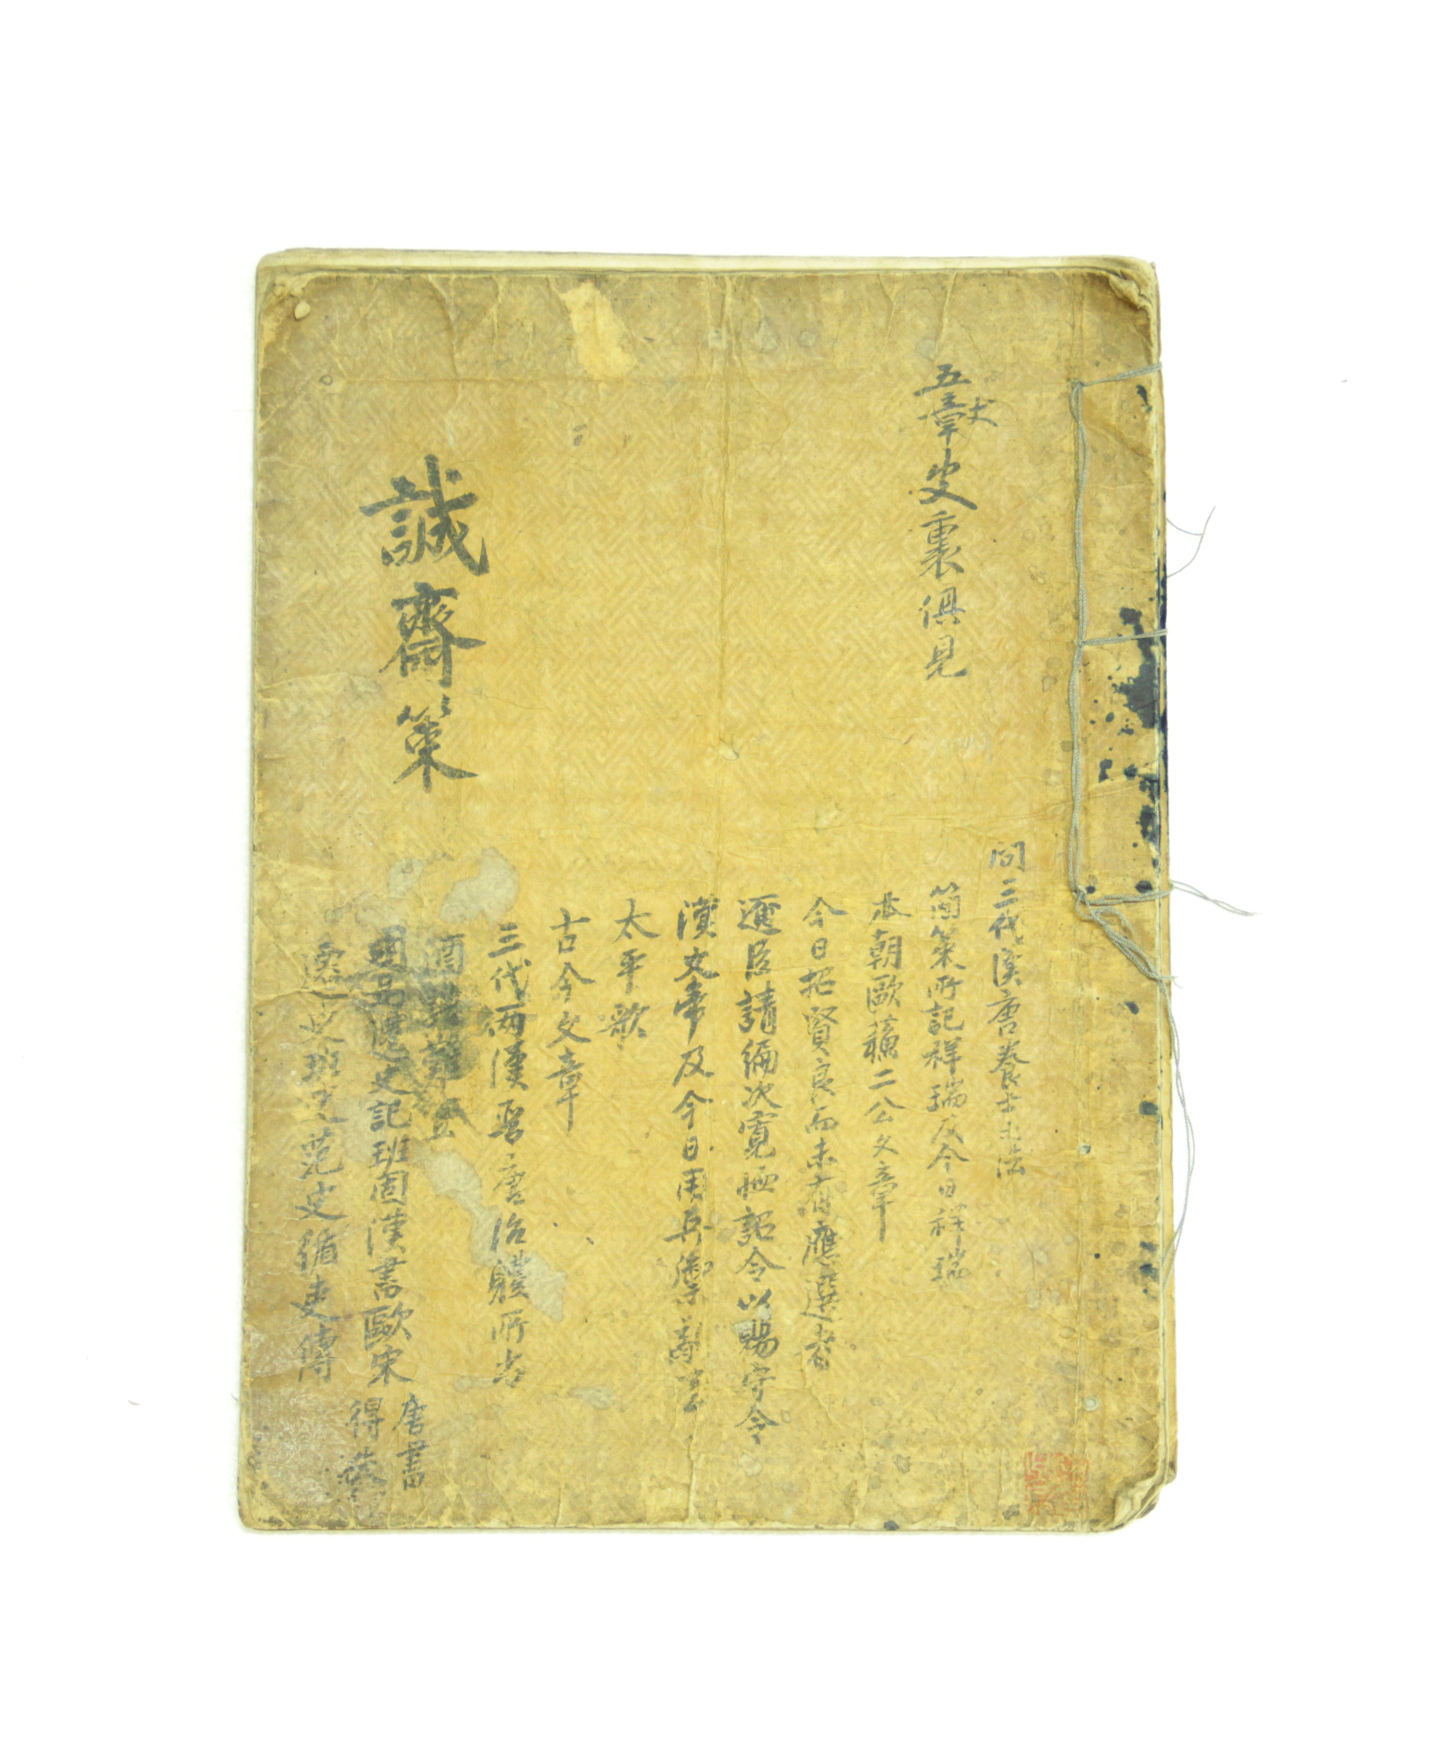 五章文
皮裏俱見
問三代漢唐養士之法
簡策所記祥瑞及今日祥瑞
本朝歐蘇二公文章
今日招賢良而未有應選者
邇臣請編次寬恤詔令以賜守令
漢文帝及今日用兵禦
太平歌
古今文章
三代兩漢晋唐治體所尚
司馬遷史記班固漢書歐宋唐書得失
遷史班史范史循吏傳
誠齋策